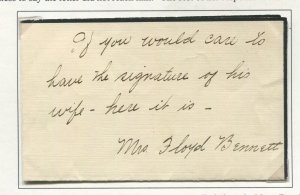 If you would care to
have the signature of his
wife - here it is -
Mrs. Floyd Bennett